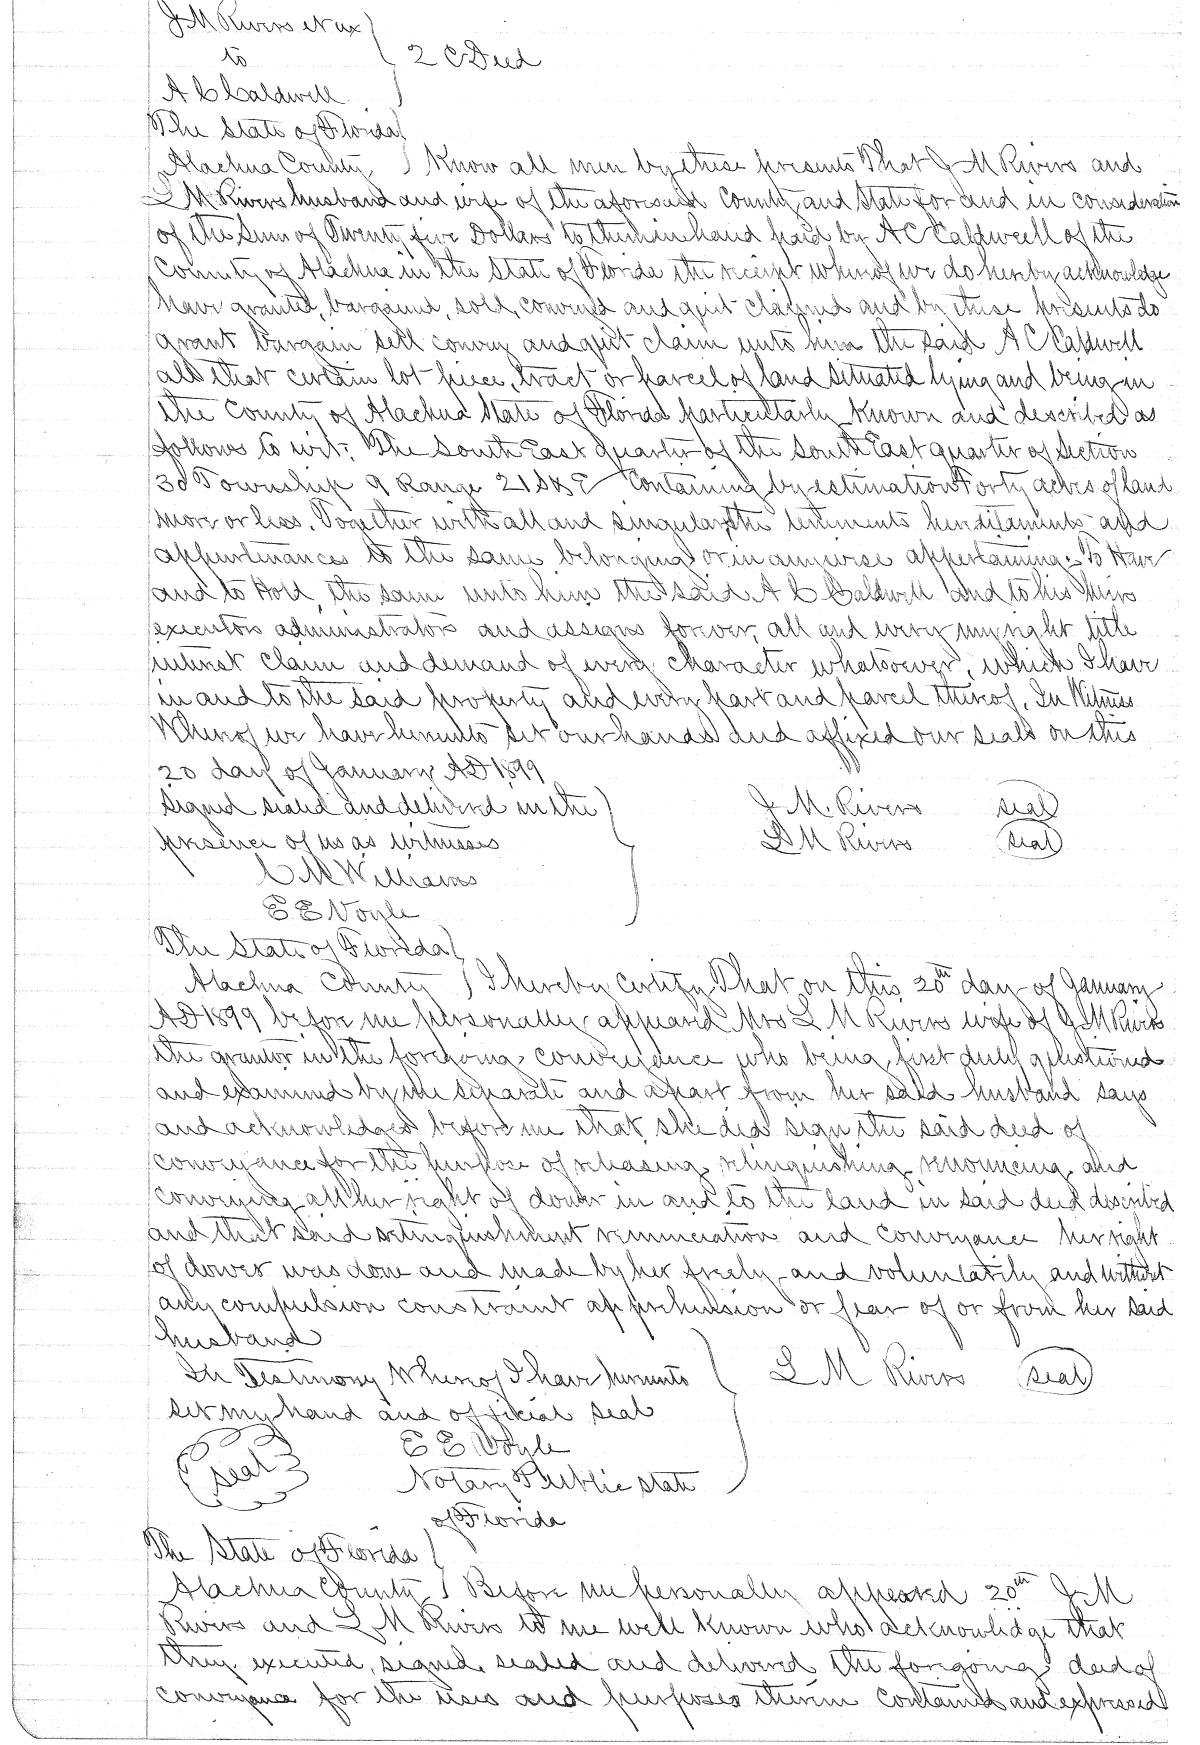 J M Rivers et ux
to
A C Caldwell
2 C Deed
The State of Florida
Alachua County Know all men by these presents That J M Rivers and
L M Rivers husband and wife of the aforesaid County and State for and in consideration
of the Sum of Twenty five Dollars to them in hand paid by A C Caldwell of the
County of Alachua in the State of Florida the receipt whereof we do hereby acknowledge
have granted, bargained, sold, conveyed and quit claimed and by these presents do
grant bargain sell convey and quit claim unto him the said A C Caldwell
all that certain lot piece, tract or parcel of land situated lying and being in
the County of Alachua State of Florida particularly known and described as
follows to wit: The South East quarter of the South East quarter of Section
Township 9 Range 21 S & E Containing by estimation Forty acres of land
more or less. Together with all and singular, the tenements hereditaments and
appurtenances to the same belonging or in anywise appertaining: To Have
and to Hold, the same unto him the said A C Caldwell and to his heirs
executors administrators and assigns forever, all and every my right title
interest claim and demand of every character whatsoever, which I have
in and to the said property and every part and parcel thereof. In Witness
Whereof we have hereunto set our hands and affixed our seals on this
20 day of January AD 1899
Signed sealed and delivered in the J. M. Rivers seal
presence of us as witnesses L M Rivers seal
C M Williams
E E Voyle
The State of Florida
Alachua County I hereby Certify That on this 20th day of January
AD 1899 before me personally appeared Mrs L M Rivers wife of J M Rivers
the grantor in the foregoing conveyance who being first duly questioned
and examined by me separate and apart from her said husband says
and acknowledges before me that she did sign the said deed of
conveyance for the purpose of releasing, relinquishing, renouncing and
conveying all her right of dower in and to the land in said deed described
and that said relinquishment renunciation and conveyance her right
of dower was done and made by her freely and voluntarily and without
any compulsion constraint apprehension or fear of or from her said
husband
In Testimony Whereof I have hereunto L M Rivers seal
set my hand and official seal
seal E E Voyle
Notary Public State
of Florida
The State of Florida
Alachua County Before me personally appeared 20th J M
Rivers and L M Rivers to me well known who acknowledge that
they executed, signed, sealed and delivered the foregoing deed of
conveyance for the uses and purposes therein contained and expressed